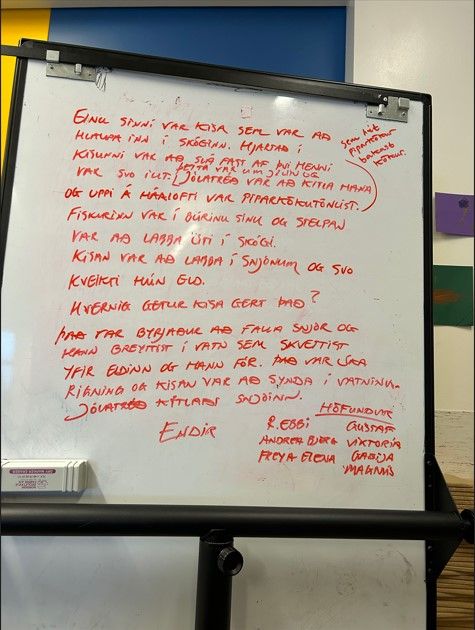 EINU SINNI VAR KISA SEM VAR AÐ
HLAUPA INN Í SKÓGINN. HJARTAÐ Í
KISUNNI VAR AÐ SLÁ FAST AF ÞVÍ HENNI
VAR SVO ILLT. ÞETTA VAR UM JÓLIN OG
JÓLATRÉÐ VAR AÐ KITLA HANA
OG UPPI Á HÁALOFTI VAR PIPARKÖKUTÓNLIST.
SEM HÉT
PIPARKÖKUR
BAKAST
KÖKUR.
FISKURINN VAR Í BÚRINU SÍNU OG STELPAN
VAR AÐ LABBA ÚTI Í SKÓGI.
KISAN VAR AÐ LABBA Í SNJÓNUM OG SVO
KVEIKTI HÚN ELD.
HVERNIG GETUR KISA GERT ÞAÐ?
ÞAÐ VAR BYRJAÐUR AÐ FALLA SNJÓR OG
HANN BREYTTIST Í VATN SEM SKVETTIST
YFIR ELDINN OG HANN FÓR. ÞAÐ VAR LÍKA
RIGNING OG KISAN VAR AÐ SYNDA Í VATNINU.
JÓLATRÉÐ KITLAÐI SNJÓINN.
ENDIR
HÖFUNDUR
R. EBBI GUSTAF
ANDREA BJÖRG VIKTORIA
FREYA ELENA GABIJA
MAGNUS